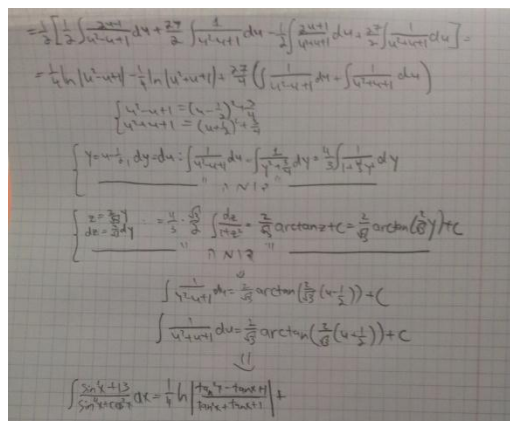 =1/2[1/2∫(2u-1)/(u²-u+1)du+27/2∫1/(u²-u+1)du-1/2∫(2u+1)/(u²+u+1)du+27/2∫1/(u²+u+1)du]=
=1/4ln|u²-u+1|-1/4ln|u²+u+1|+27/4(∫1/(u²-u+1)du+∫1/(u²+u+1)du)
{u²-u+1=(u-1/2)²+3/4
{u²+u+1=(u+1/2)²+3/4
{y=u-1/2, dy=du=∫1/(u²-u+1)du=∫1/(y²+3/4)dy=4/3∫1/(1+4/3y²)dy
=4/3·√3/2∫dz/(1+z²)=2/√3arctanz+C=2/√3arctan(2/√3y)+C
∫1/(u²-u+1)du=2/√3arctan(2/√3(u-1/2))+C
∫1/(u²+u+1)du=2/√3arctan(2/√3(u+1/2))+C
∫(sin²x+13)/(sin⁴x+cos²x)dx=1/4ln|(tan²x-tanx+1)/(tan²x+tanx+1)|+